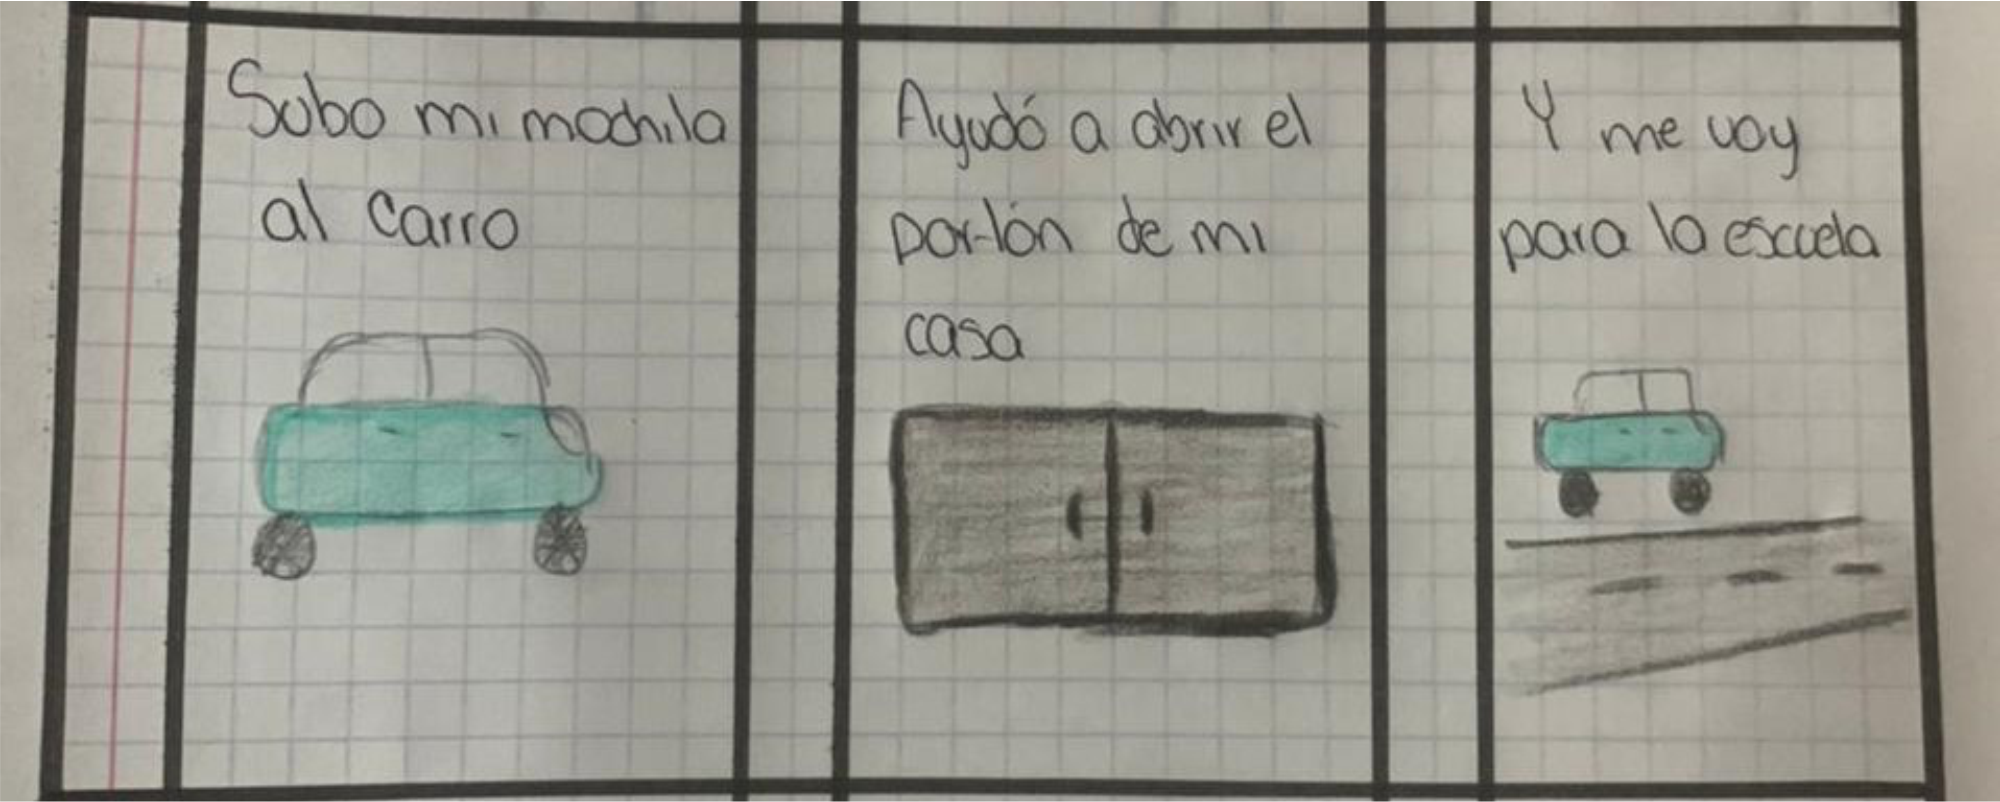 Subo mi mochila
al carro
Ayudó a abrir el
portón de mi
casa
Y me voy
para la escuela